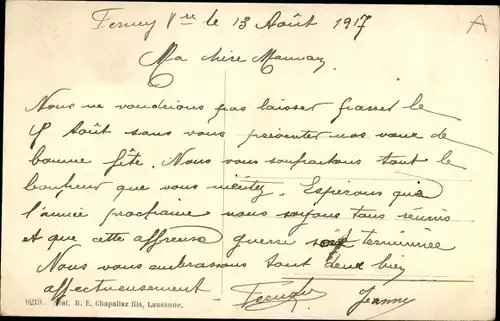 Ferney Vre le 13 Août 1917
A
Ma chère Maman,
Nous ne voudrions pas laisser passer le
15 Août sans vous présenter nos vœux de
bonne fête. Nous vous souhaitons tout le
bonheur que vous méritez. Espérons que
l'année prochaine nous soyons tous réunis
et que cette affreuse guerre soit terminée
Nous vous embrassons tout deux bien
affectueusement
Jeanne
6219. Néat. R. E. Chapallaz fils, Lausanne.